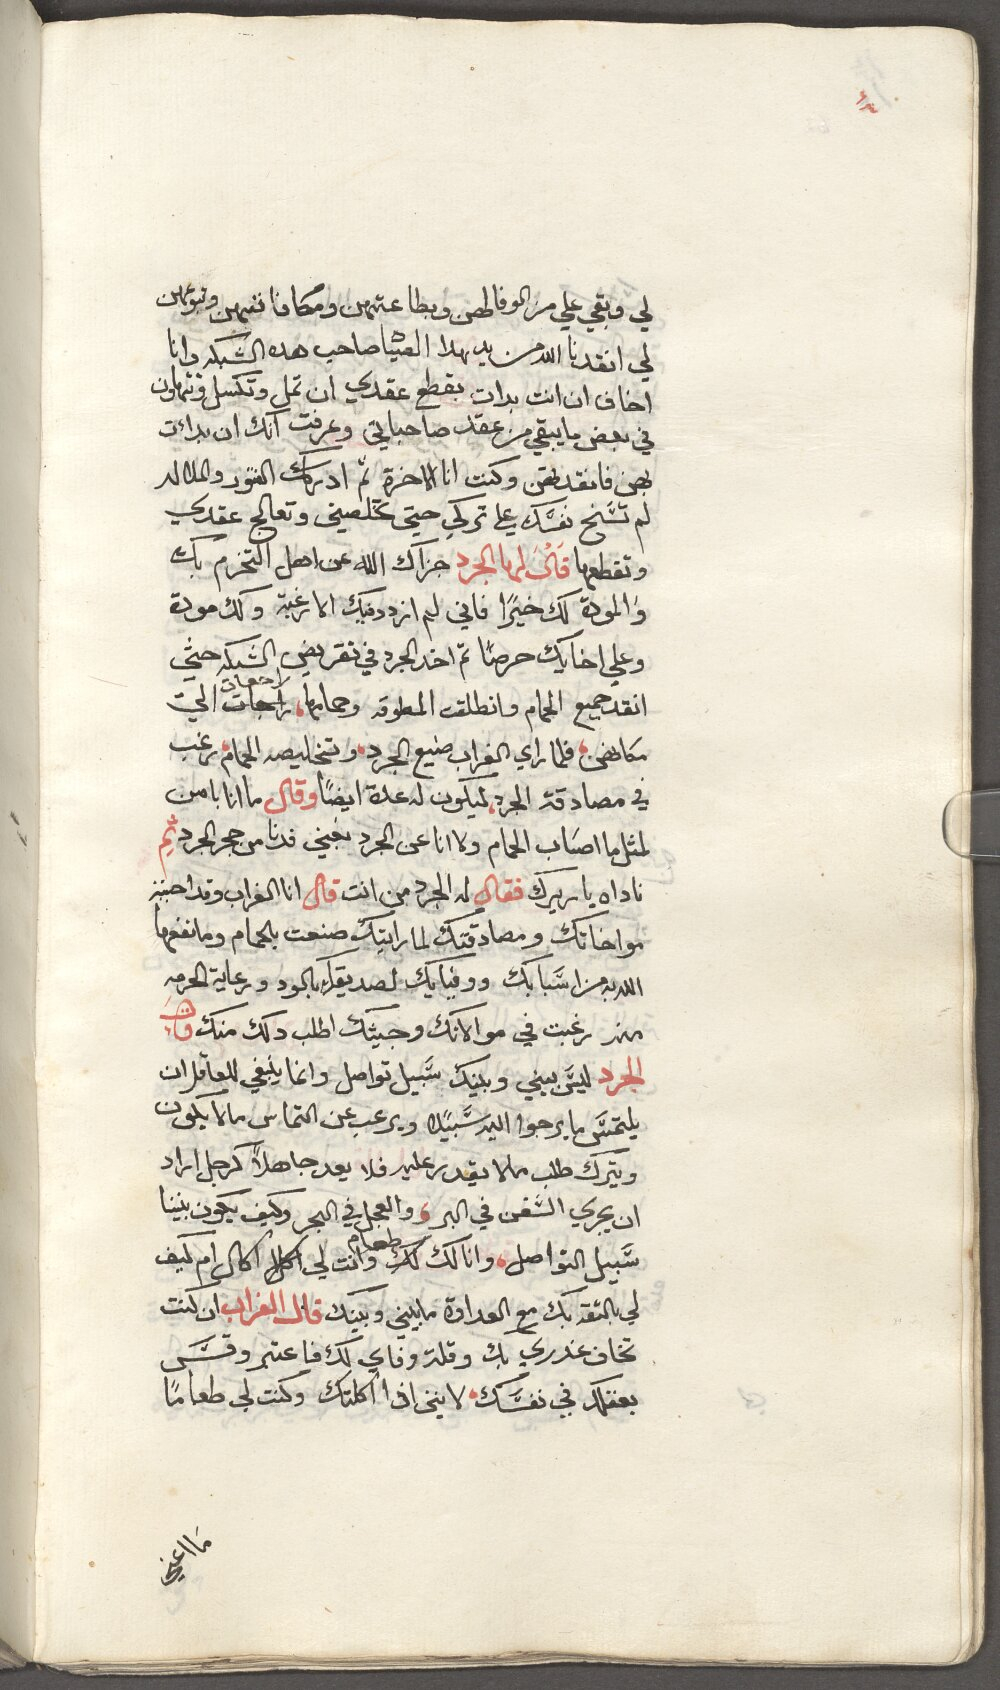 ٨٤
لي وبقي علي من الوفا لهن وبطاعتهن ومكافاتهن وتبوتهن
لي انقدنا الله من يد هدا الصياد صاحب هده الشبكه وانا
اخاف ان انت بدات بقطع عقدي ان تمل وتكسل وتتهاون
في بعض ما يبقي من عقد صاحباتي وعرفت انك ان بدات
بهن فانقدتهن وكنت انا الاخرة ثم ادركك الفتور والملاله
لم تسح نفسك علي تركي حتي تخلصيني وتعالج عقدي
وتقطعها قال لها الجرد جزاك الله عن اهل التخرم بك
والمودة لك خيرًا فاني لم ازدد فيك الا رغبة ولك مودة
وعلي اخايك حرصًا ثم اخد الجرد في تقريض الشبكه حتي
انقد جميع الحمام وانطلقت المطوقه وحمامها راجعات الي
مكانهن فلما راي الغراب صنيع الجرد وتخليصه الحمام رغب
في مصادقة الجرد ليكون له عدة ايضًا وقال ما انا بامن
لمثل ما اصاب الحمام ولا انا عن الجرد بغني فدنا من جحر الجرد ثم
ناداه يا زيرك فقال له الجرد من انت قال انا الغراب وقد احببت
مواخاتك ومصادقتك لما رايتك صنعت بالحمام وما نفعها
الله به من اسبابك ووفيايك لصديقك بالمود ورعاية الحرمه
منه رغبت في موالاتك وجيتك اطلب دلك منك قال
الجرد ليس بيني وبينك سبيل تواصل وانما ينبغي للعاقل ان
يلتمس ما يرجوا اليه سبيلا ويرغب عن التماس ما لا يكون
ويترك طلب ما لا يقدر عليه فلا يعد جاهلاً كرجل اراد
ان يجري السفن في البر والعجل في البحر وكيف يكون بيننا
سبيل التواصل وانا لك طعام وانت لي اكال ام كيف
لي بالثقة بك مع العداوة ما بيني وبينك قال الغراب ان كنت
تخاف غدري بك وقلة وفاي لك فاعتبر وقس
بعقلك في نفسك لانني اذا اكلتك وكنت لي طعامًا
ما اغني